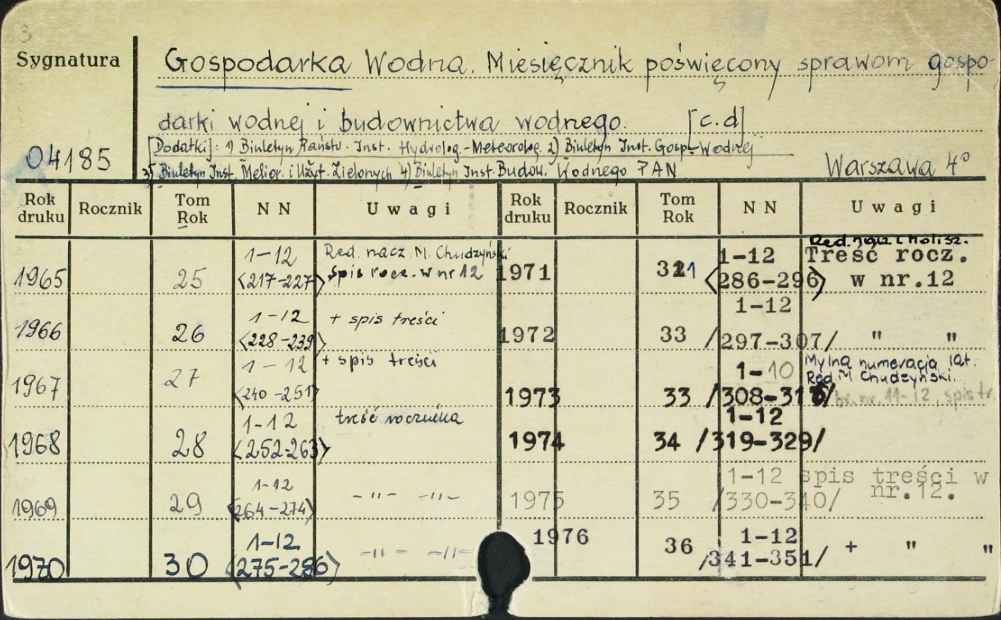 3
Sygnatura
Gospodarka Wodna. Miesięcznik poświęcony sprawom gospo-
darki wodnej i budownictwa wodnego. [c.d]
[Dodatki]: 1) Biuletyn Państw. Inst. Hydrolog.-Meteorolog. 2) Biuletyn Inst. Gosp. Wodnej
04185
3) Biuletyn Inst. Melior. i Użyt. Zielonych 4) Biuletyn Inst. Budow. Wodnego PAN
Warszawa 4°
Rok druku Rocznik Tom Rok NN Uwagi Rok druku Rocznik Tom Rok NN Uwagi
1965 25 1-12 <217-227> Red. nacz. M. Chudzyński spis rocz. w nr 12
1966 26 1-12 <228-239> + spis treści
1967 27 1-12 <240-251> + spis treści
1968 28 1-12 <252-263> treść rocznika
1969 29 1-12 <264-274> -"- -"-
1970 30 1-12 <275-286> -"- -"-
1971 31 1-12 <286-296> Red. nacz. Treść rocz. w nr.12
1972 33 1-12 /297-307/ " "
1973 33 1-10 /308-317/ Mylna numeracja lat. Red. M Chudzyński. br. nr. 11-12, spis tr
1974 34 1-12 /319-329/
1975 35 1-12 /330-340/ spis treści w nr.12.
1976 36 1-12 /341-351/ + " "